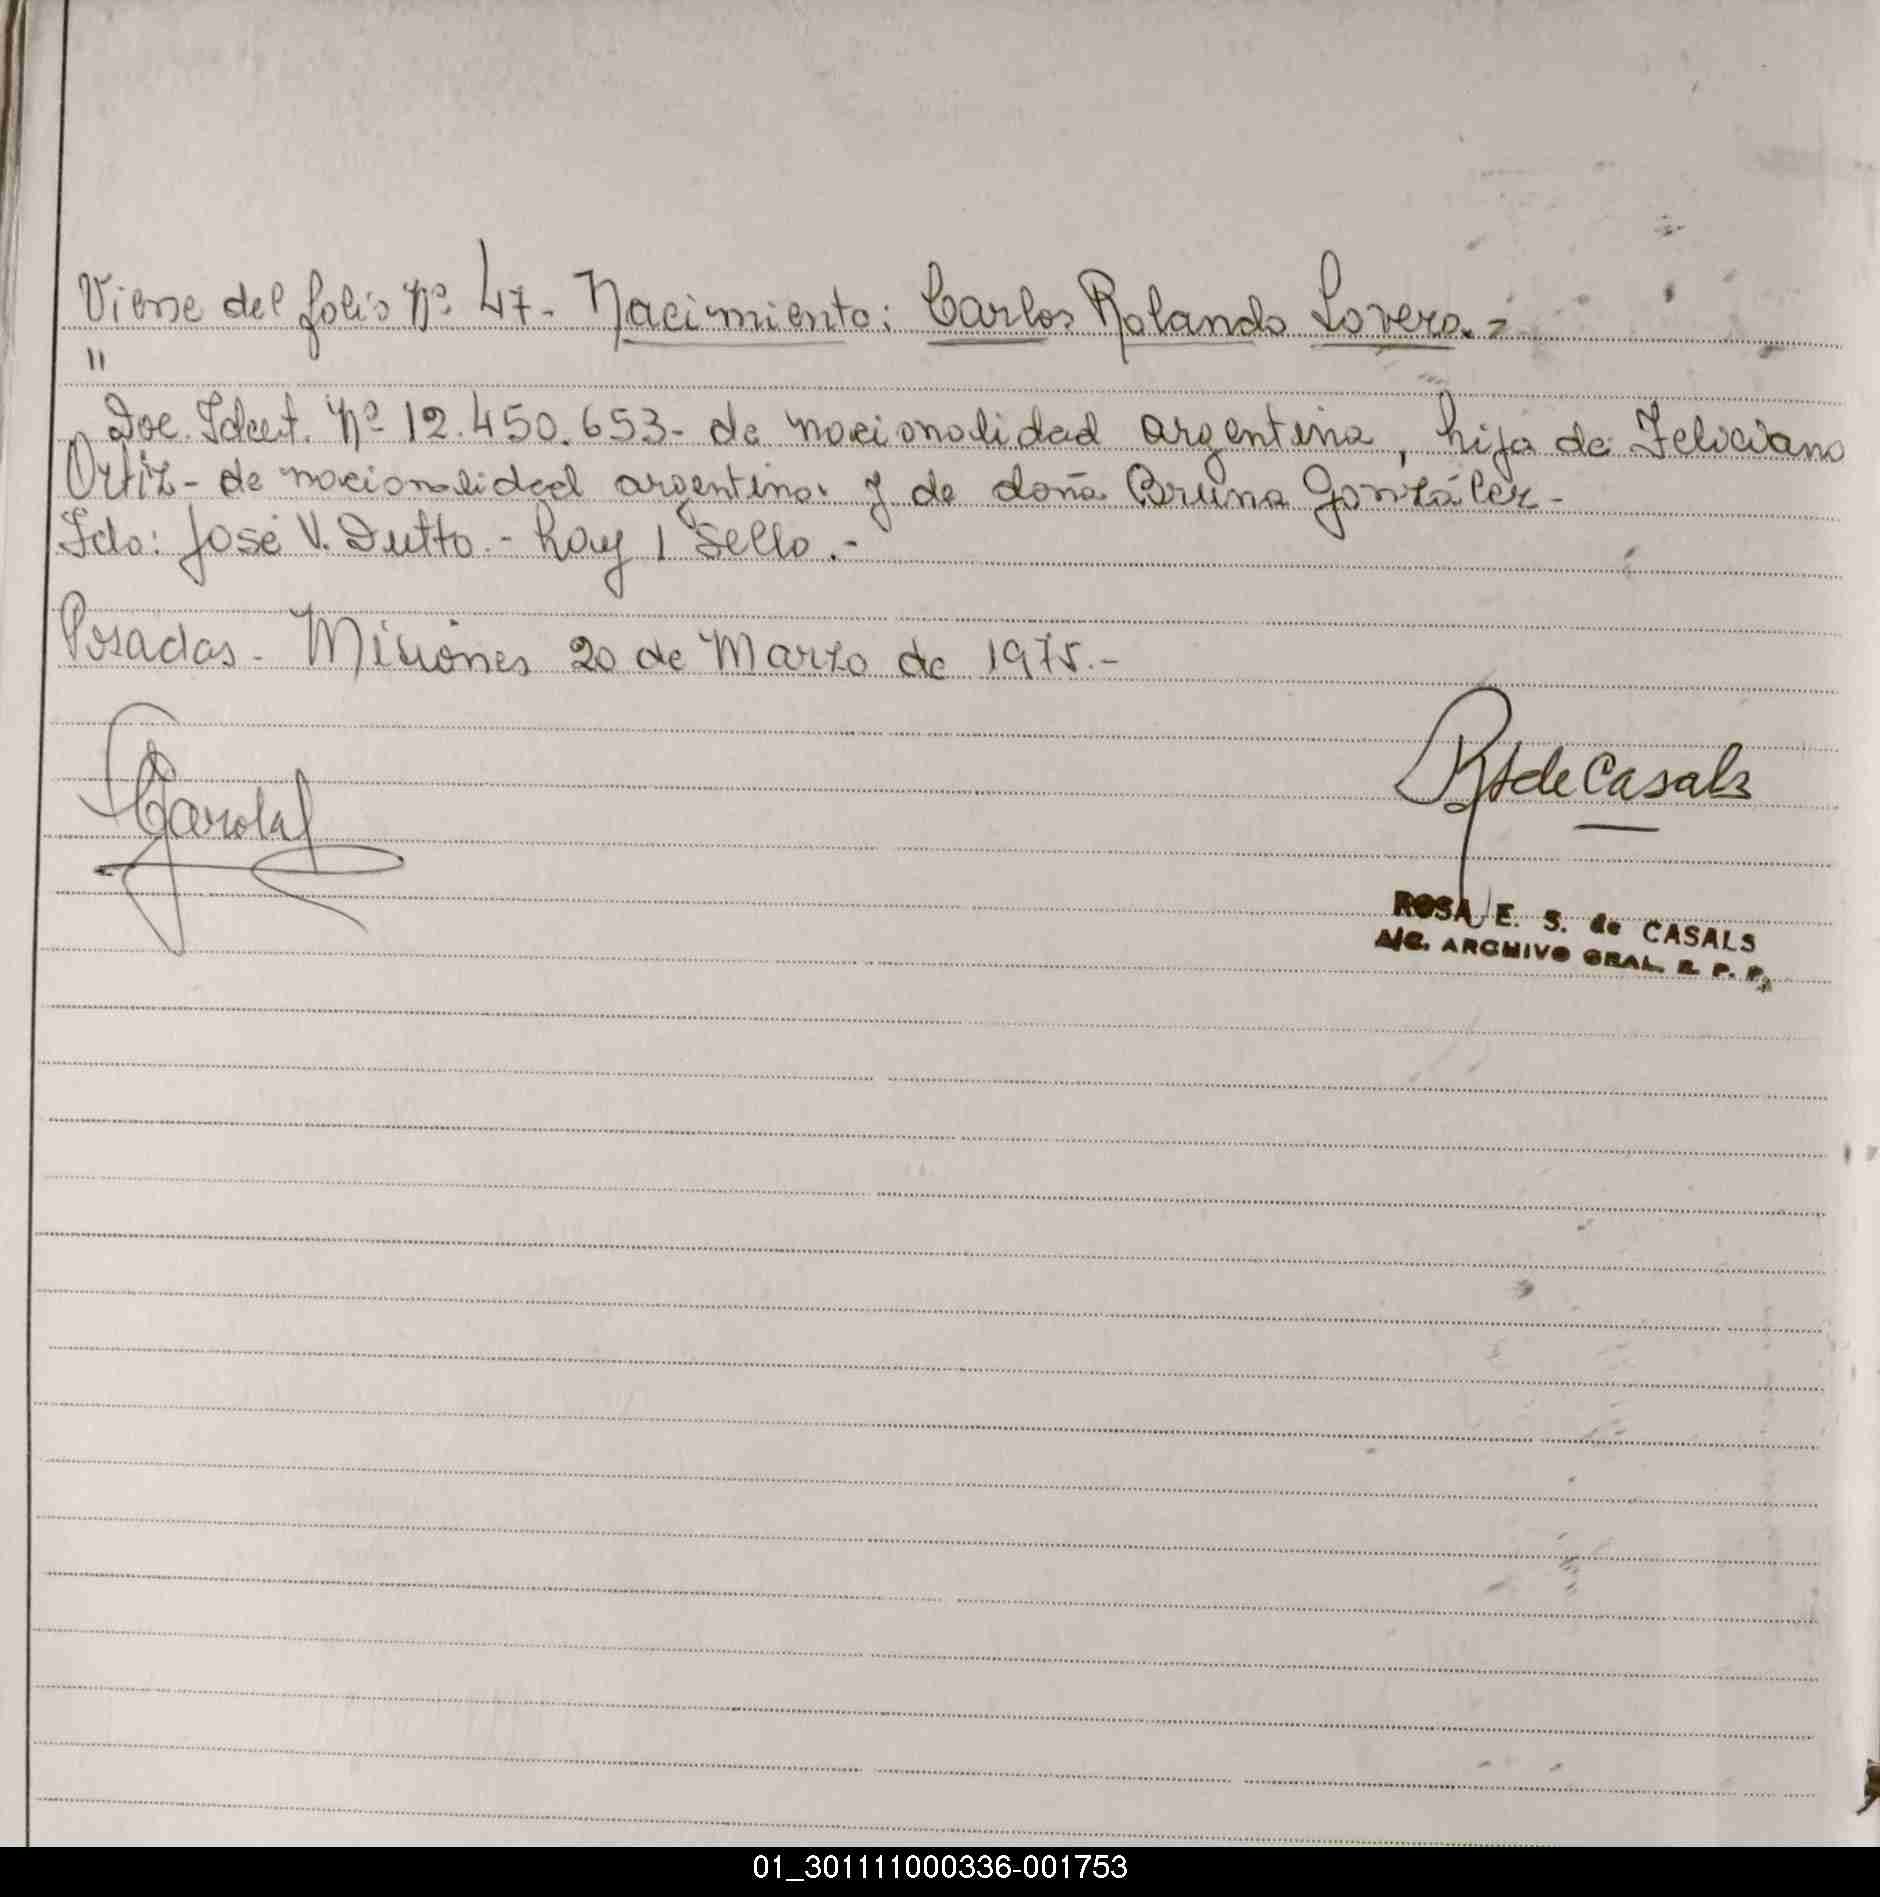 Viene del folio Nº 47- Nacimiento: Carlos Rolando Lovera.-
"
Doc. Ident. Nº 12.450.653- de nacionalidad argentina, hija de Feliciano
Ortiz- de nacionalidad argentina y de doña Bruna González-
Fdo: José V. Dutto.- hay 1 Sello.-
Posadas- Misiones 20 de Marzo de 1975.-
de Casals
ROSA E. S. de CASALS
A/C. ARCHIVO GRAL. R. P. P.
01_301111000336-001753